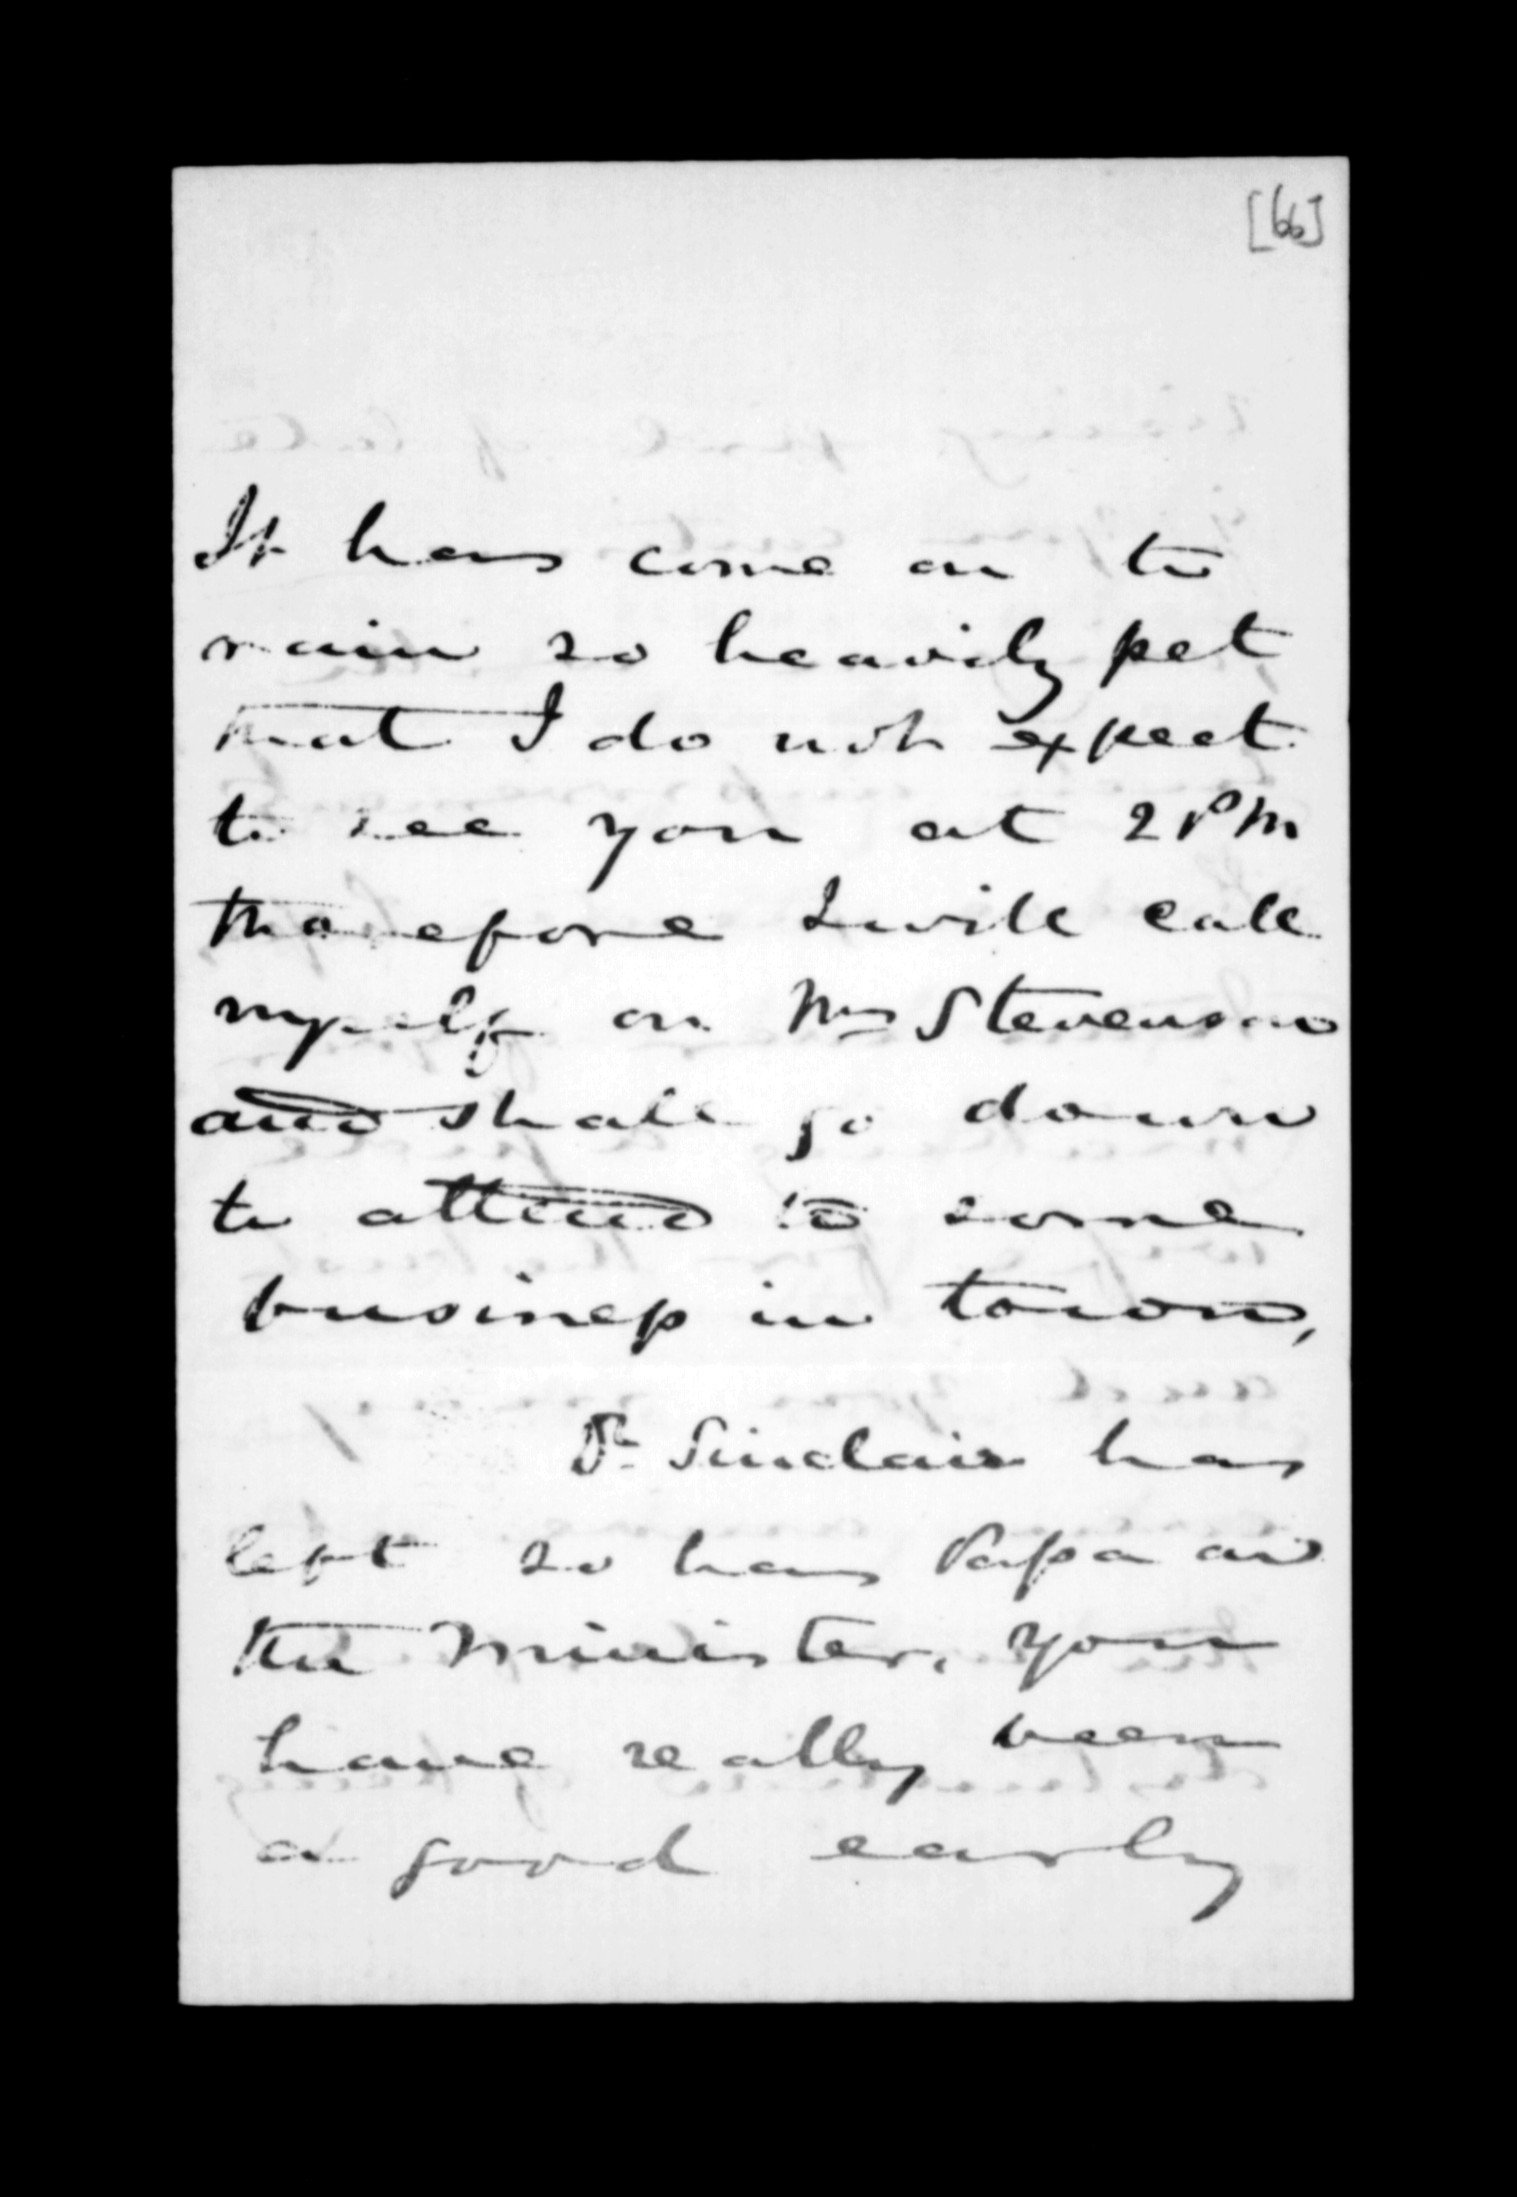 [66]
It has come on to
rain so heavily pet
that I do not expect
to see you at 2 PM
therefore I will call
myself on Mrs Stevenson
and shall go down
to attend to some
business in town,
Dr Sinclair has
left so has Papa and
the Minister, you
have really been
a good early